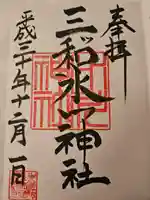 奉拝
三和氷川神社
平成三十年十二月一日